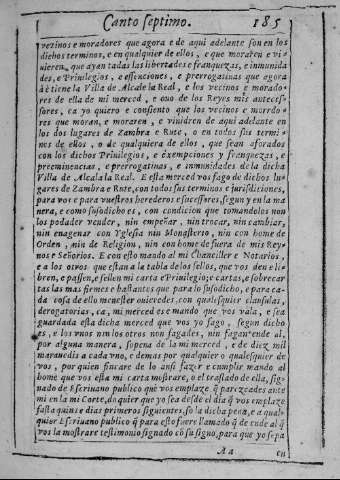 Canto septimo. 185
vezinos e moradores que agora e de aqui adelante son en los
dichos terminos, e en qualquier de ellos, e que moraren e vi-
uieren, que ayen todas las libertades e franquezas, e inmunida
des, e Priuilegios, e essenciones, e prerrogatinas que agora
à e tiene la Villa de Alcale la Real, e los vezinos e morado-
res de ella de mi merced, e ono de los Reyes mis anteces-
sores, ca yo quiero e consiento que los vezinos e mordo-
res que moran, e moraren, e viuidren de aqui adelante en
los dos lugares de Zambra e Rute, o en todos sus termi-
nes de ellos, o de qualquiera de ellos, que sean aforados
con los dichos Priuilegios, e exempciones y franquezas, e
preeminencias, e prerrogatinas, e inmunidades de la dicha
Villa de Alcala la Real. E esta merced vos fago de dichos lu-
gares de Zambra e Rute, con todos sus terminos e jurisdiciones,
para vos e para vuestros herederos e sucessores, segun y en la ma
nera, e como susodicho es, con condicion que tomandolos non
los podades vender, nin empeñar, nin trocar, nin cambiar,
nin enagenar con Yglesia nin Monasterio, nin con home de
Orden, nin de Religion, nin con home de fuera de mis Rey-
nos e Señorios. E con esto mando al mi Chanciller e Notarios,
e a los otros que estan a la tabla de los sellos, que vos den e li-
bren, e passen, e sellen mi carta e Priuilegio; e cartas, e sobrecar
tas las mas firmes e bastantes que para lo susodicho, e para ca-
da cosa de ello menester ouieredes, con qualesquier clausulas,
derogatorias, ca, mi merced es e mando que vos vala, e sea
guardada esta dicha merced que vos yo fago, segun dicho
es, e los vnos nin los otros non fagades, nin fagan ende al,
por alguna manera, sopena de la mi merced, e de diez mil
marauedis a cada vno, e demas por qualquier o qualesquier de
vos, por quien fincare de lo ansi fazer e cumplir mando al
home que vos esta mi carta mostrare, o el traslado de ella, sig-
nado de Escriuano publico que vos emplaze q̃ parezcades ante
mi en la mi Corte, do quier que yo sea desde el dia q̃ vos emplaze
fasta quinze dias primeros siguientes, so la dicha pena, e a qual-
quier Escriuano publico q̃ para esto fuere llamado q̃ de ende al q̃
vos la mostrare testimonio signado cõ su signo, para que yo sepa
Aa en